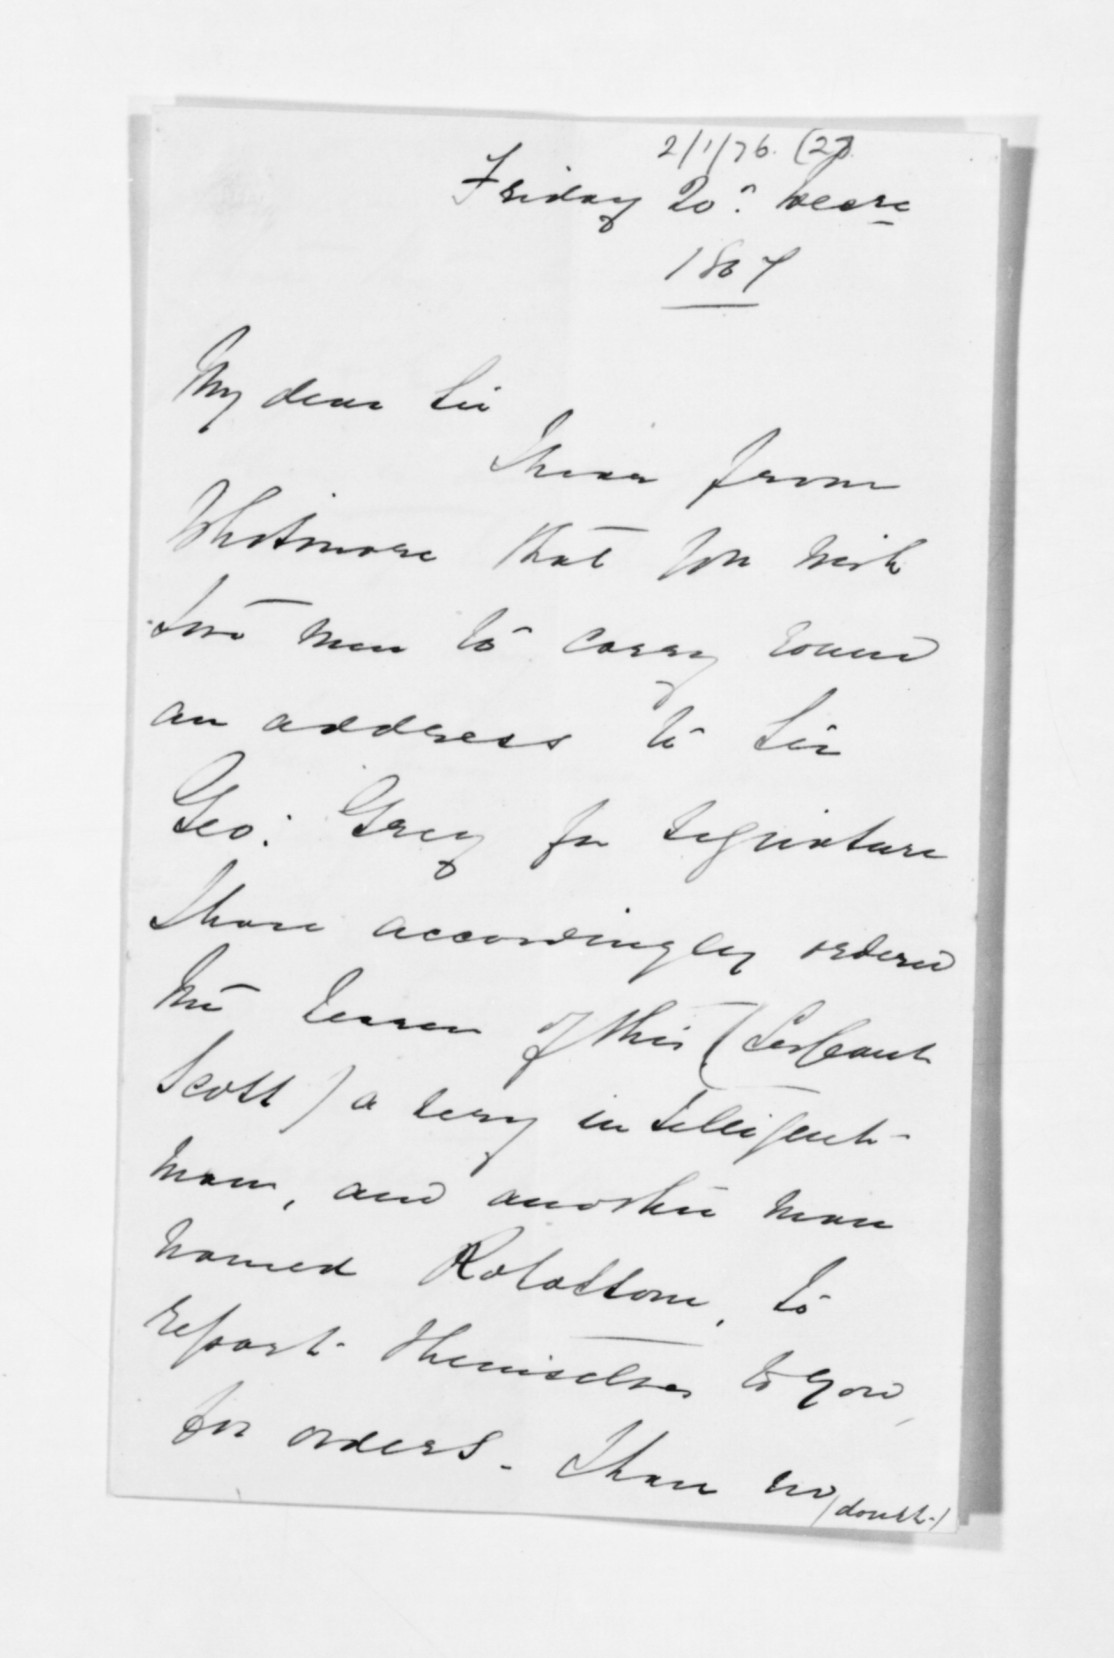 2/1/76. (27).
Friday 20th Decre
1867
My dear Sir
I hear from
Whitmore that you wish
two men to carry round
an address to Sir
Geo: Grey for signature
I have accordingly ordered
of this (Serjeant
Scott) a very intelligent
man, and another man
named Rolattom, to
report themselves to you,
for orders. I have no
/doubt/